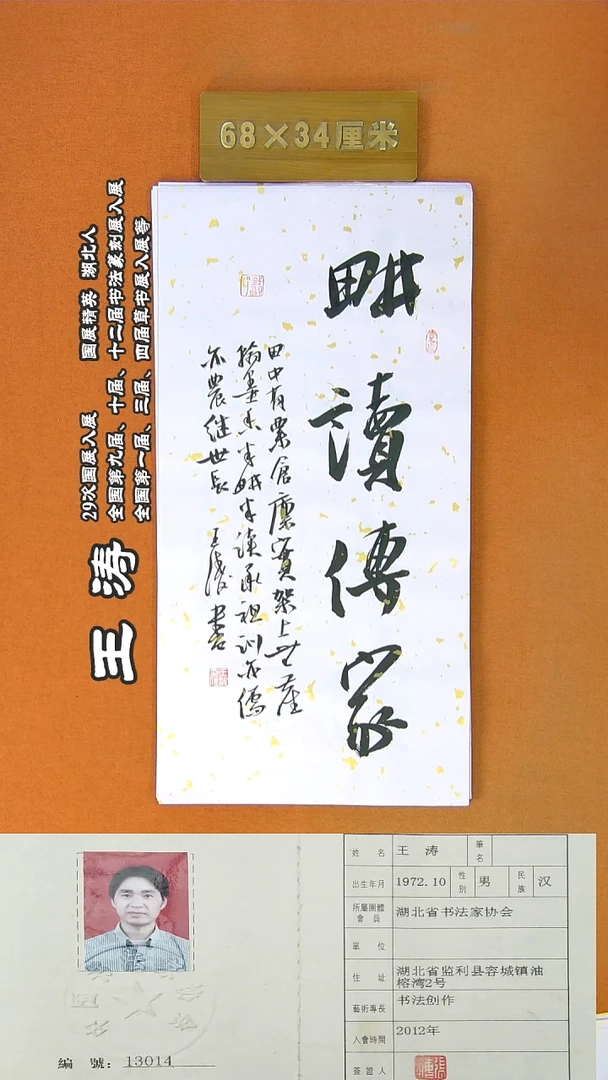 68×34厘米
畊
讀
傳
家
田中有粟倉廩實架上無産
翰墨香半畊半读承祖训亦儒
亦農继世長 王涛書
王涛
29次国展入展 国展精英 湖北人
全国第九届、十届、十二届书法篆刻展入展
全国第一届、三届、四届草书展入展等
編 號：13014
姓 名 王 涛 筆名
出生年月 1972.10 性別 男 民族 汉
所屬團體會員 湖北省书法家协会
單 位
住 址 湖北省监利县容城镇油
榕湾2号
藝術專長 书法创作
入會時間 2012年
簽證人